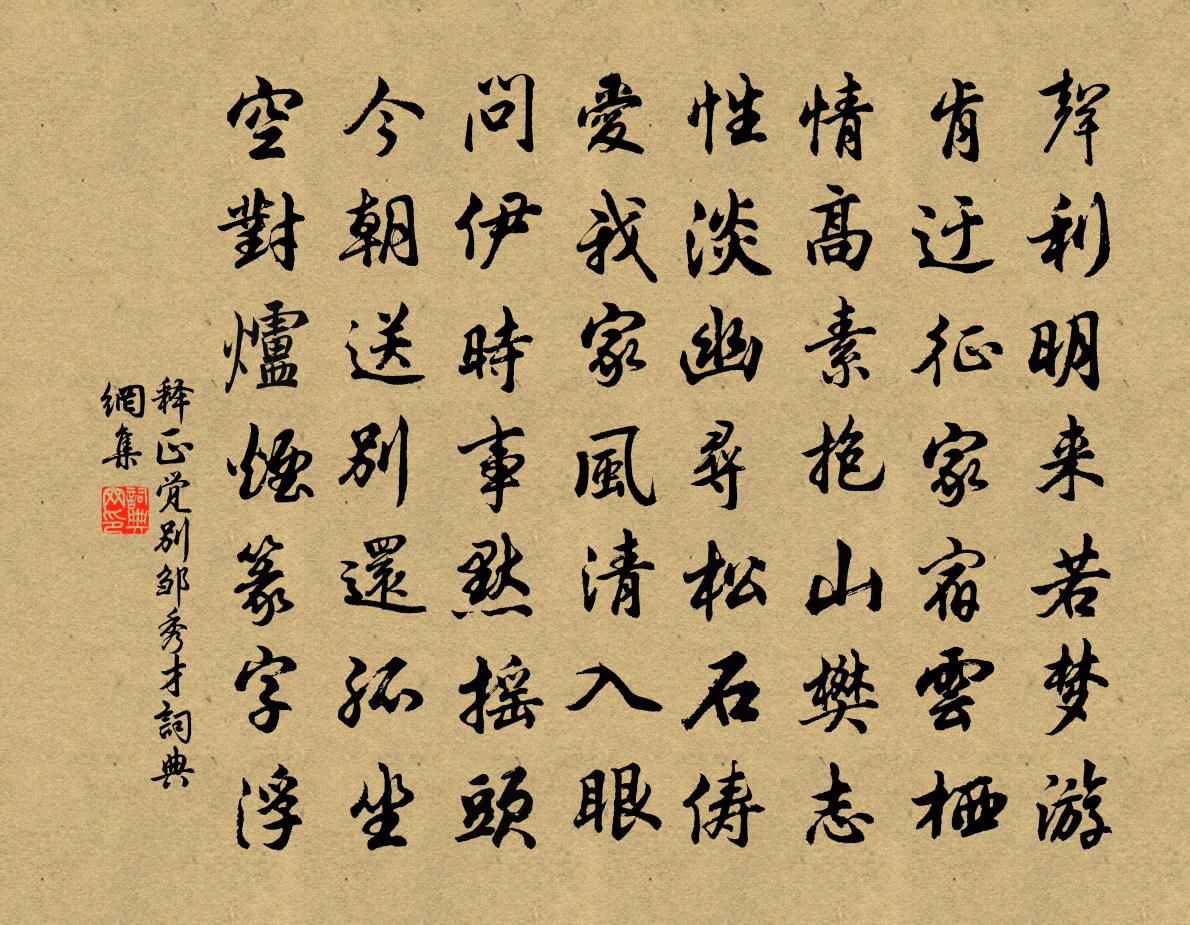 聲利明来若梦游
肯迂征家宿雲栖
情高素抱山樊志
性淡幽尋松石儔
愛我家風清入眼
問伊時事默摇頭
今朝送别還孤坐
空對爐煙篆字浮
释正觉别邹秀才詞典
網集
詞典网印